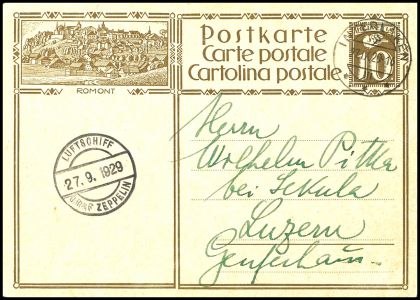 Postkarte
Carte postale
Cartolina postale
ROMONT
10
LUFTSCHIFF
27.9.1929
GRAF ZEPPELIN
Herrn
Wilhelm Pitka
bei Sekula
Luzern
Genferhaus